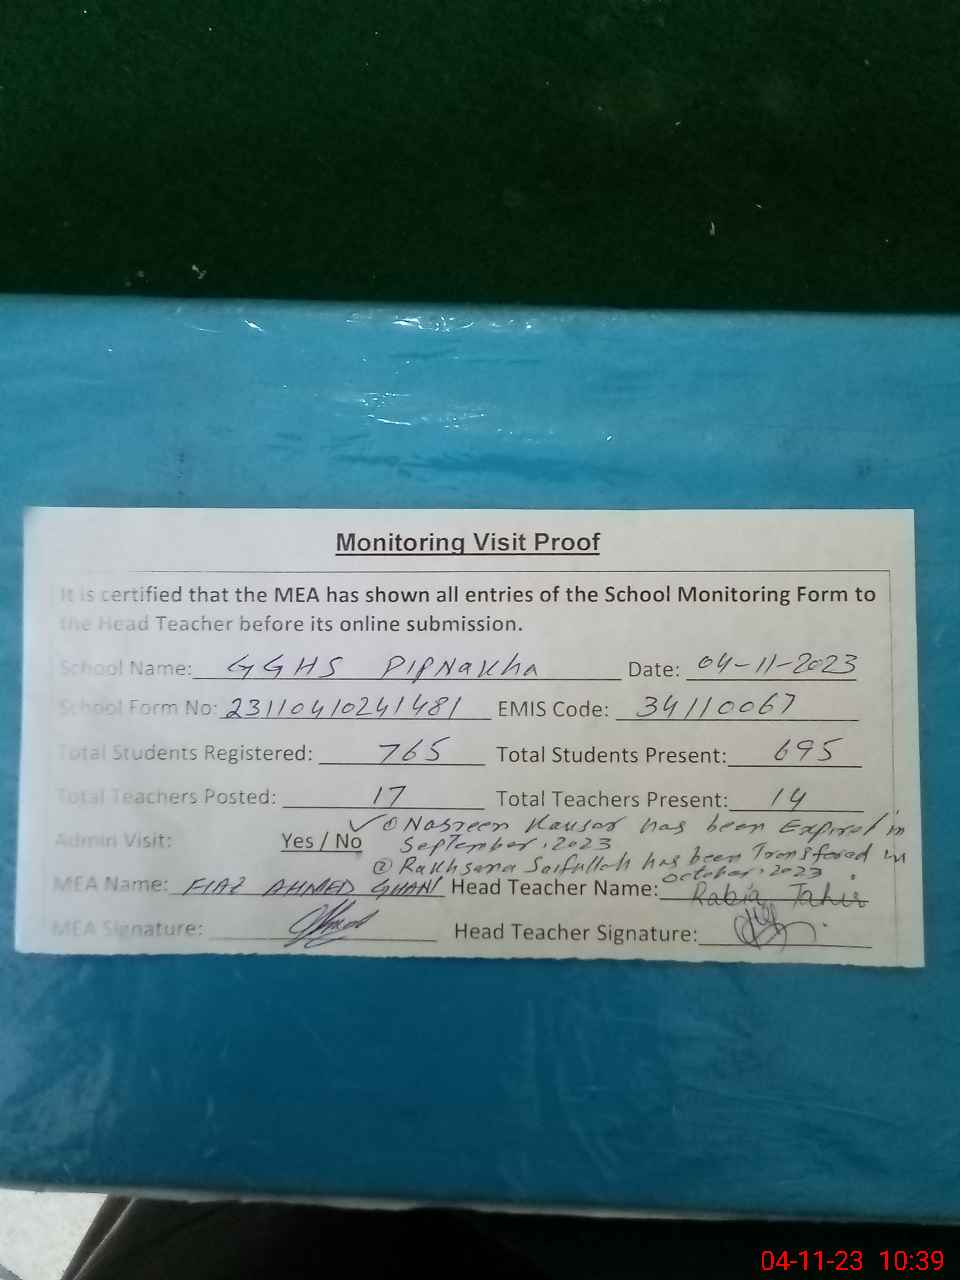 Monitoring Visit Proof
It is certified that the MEA has shown all entries of the School Monitoring Form to
the Head Teacher before its online submission.
School Name: GGHS PIPNakha Date: 04-11-2023
School Form No: 23110410241481 EMIS Code: 34110067
Total Students Registered: 765 Total Students Present: 695
Total Teachers Posted: 17 Total Teachers Present: 14
✓ ① Nasreen Kausar has been Expired in
Admin Visit: Yes / No September, 2023
② Rakhsana Saifullah has been Transfered in
October, 2023
MEA Name: FIAZ AHMED GHANI Head Teacher Name: Rabia Tahir
MEA Signature: Head Teacher Signature:
04-11-23 10:39